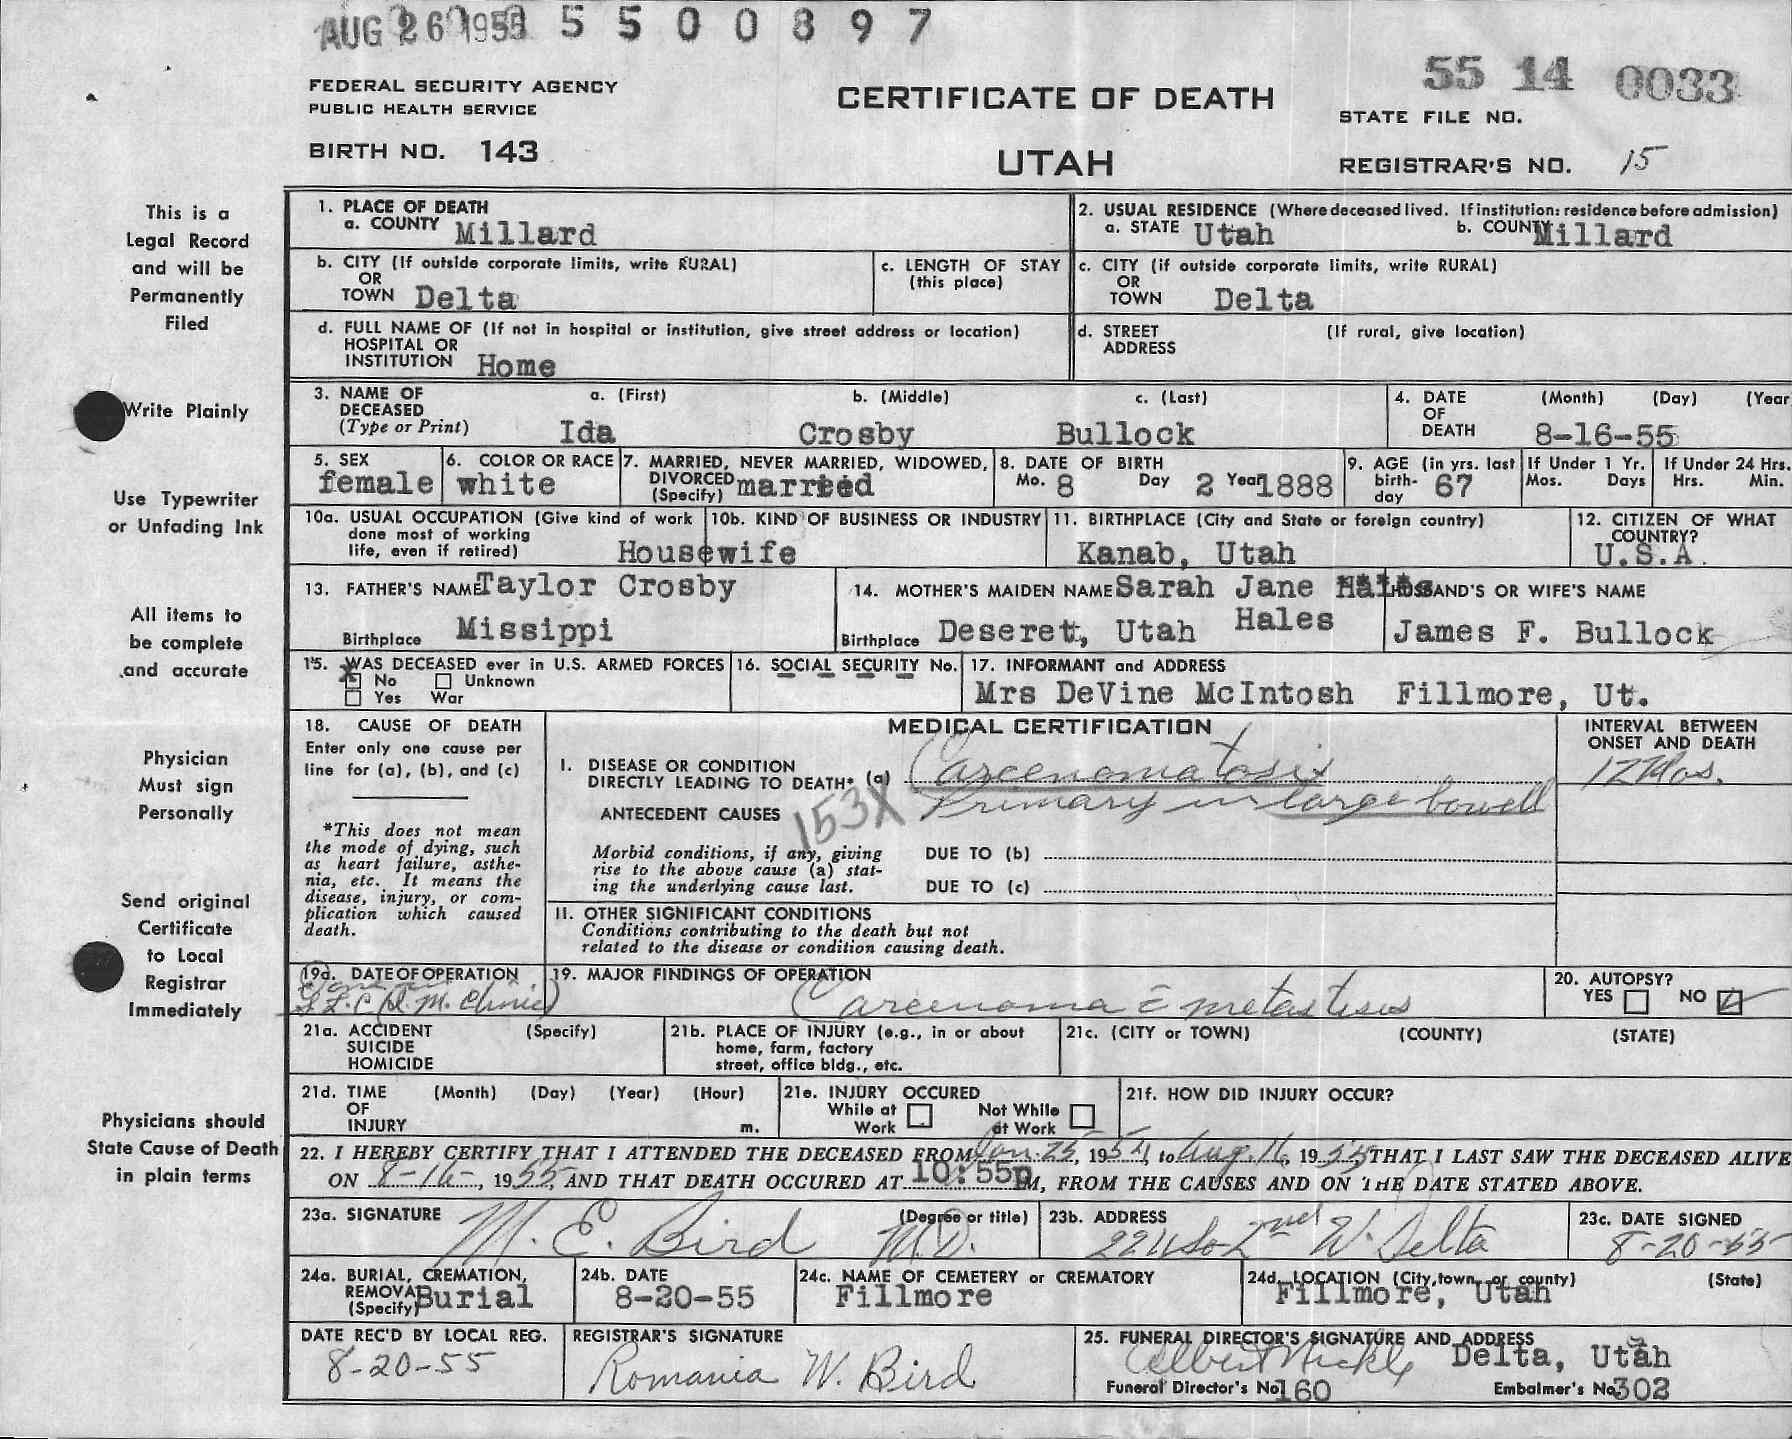 AUG 26 1955 5 5 0 0 8 9 7
55 14 0033
FEDERAL SECURITY AGENCY
PUBLIC HEALTH SERVICE
CERTIFICATE OF DEATH
STATE FILE NO.
BIRTH NO. 143
UTAH
REGISTRAR'S NO. 15
This is a
Legal Record
and will be
Permanently
Filed
Write Plainly
Use Typewriter
or Unfading Ink
All items to
be complete
and accurate
Physician
Must sign
Personally
Send original
Certificate
to Local
Registrar
Immediately
Physicians should
State Cause of Death
in plain terms
1. PLACE OF DEATH
a. COUNTY Millard
2. USUAL RESIDENCE (Where deceased lived. If institution: residence before admission)
a. STATE Utah b. COUNTY Millard
b. CITY (If outside corporate limits, write RURAL)
OR
TOWN Delta
c. LENGTH OF STAY
(this place)
c. CITY (if outside corporate limits, write RURAL)
OR
TOWN Delta
d. FULL NAME OF (If not in hospital or institution, give street address or location)
HOSPITAL OR
INSTITUTION Home
d. STREET (If rural, give location)
ADDRESS
3. NAME OF a. (First) b. (Middle) c. (Last)
DECEASED
(Type or Print) Ida Crosby Bullock
4. DATE (Month) (Day) (Year
OF
DEATH 8-16-55
5. SEX
female
6. COLOR OR RACE
white
7. MARRIED, NEVER MARRIED, WIDOWED,
DIVORCED
(Specify) married
8. DATE OF BIRTH
Mo. 8 Day 2 Year 1888
9. AGE (in yrs. last
birth-
day 67
If Under 1 Yr.
Mos. Days
If Under 24 Hrs.
Hrs. Min.
10a. USUAL OCCUPATION (Give kind of work
done most of working
life, even if retired) Housewife
10b. KIND OF BUSINESS OR INDUSTRY
11. BIRTHPLACE (City and State or foreign country)
Kanab, Utah
12. CITIZEN OF WHAT
COUNTRY?
U.S.A.
13. FATHER'S NAME Taylor Crosby
Birthplace Missippi
14. MOTHER'S MAIDEN NAME Sarah Jane
Hales
Birthplace Deseret, Utah
HUSBAND'S OR WIFE'S NAME
James F. Bullock
15. WAS DECEASED ever in U.S. ARMED FORCES
X No Unknown
Yes War
16. SOCIAL SECURITY No.
17. INFORMANT and ADDRESS
Mrs DeVine McIntosh Fillmore, Ut.
18. CAUSE OF DEATH
Enter only one cause per
line for (a), (b), and (c)
*This does not mean
the mode of dying, such
as heart failure, asthe-
nia, etc. It means the
disease, injury, or com-
plication which caused
death.
MEDICAL CERTIFICATION
INTERVAL BETWEEN
ONSET AND DEATH
I. DISEASE OR CONDITION
DIRECTLY LEADING TO DEATH* (a) Carcenomatosis
12 Mos.
Primary in large bowell
ANTECEDENT CAUSES
153X
Morbid conditions, if any, giving
rise to the above cause (a) stat-
ing the underlying cause last.
DUE TO (b)
DUE TO (c)
II. OTHER SIGNIFICANT CONDITIONS
Conditions contributing to the death but not
related to the disease or condition causing death.
19a. DATE OF OPERATION
Done in
S.L.C. (I.M. Clinic)
19. MAJOR FINDINGS OF OPERATION
Carcenoma c̄ metasteses
20. AUTOPSY?
YES NO
21a. ACCIDENT (Specify)
SUICIDE
HOMICIDE
21b. PLACE OF INJURY (e.g., in or about
home, farm, factory
street, office bldg., etc.
21c. (CITY or TOWN) (COUNTY) (STATE)
21d. TIME (Month) (Day) (Year) (Hour)
OF
INJURY m.
21e. INJURY OCCURED
While at Not While
Work at Work
21f. HOW DID INJURY OCCUR?
22. I HEREBY CERTIFY THAT I ATTENDED THE DECEASED FROM Jan. 25, 1954, to Aug. 16, 1955 THAT I LAST SAW THE DECEASED ALIVE
ON 8-16-, 1955, AND THAT DEATH OCCURED AT 10:55p M, FROM THE CAUSES AND ON THE DATE STATED ABOVE.
23a. SIGNATURE (Degree or title)
M. E. Bird M.D.
23b. ADDRESS
224 So 2nd W. Delta
23c. DATE SIGNED
8-20-55
24a. BURIAL, CREMATION,
REMOVAL
(Specify) Burial
24b. DATE
8-20-55
24c. NAME OF CEMETERY or CREMATORY
Fillmore
24d. LOCATION (City, town, or county) (State)
Fillmore, Utah
DATE REC'D BY LOCAL REG.
8-20-55
REGISTRAR'S SIGNATURE
Romania W. Bird
25. FUNERAL DIRECTOR'S SIGNATURE AND ADDRESS
Albert Nickle Delta, Utah
Funeral Director's No. 160 Embalmer's No. 302